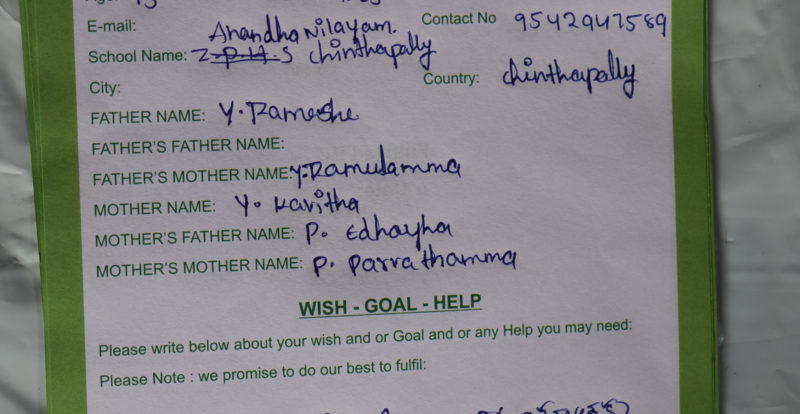 E-mail: Anandha Nilayam. Contact No 9542947589
School Name: Z.P.H.S Chinthapally
City: Country: Chinthapally
FATHER NAME: Y. Rameshe
FATHER'S FATHER NAME:
FATHER'S MOTHER NAME: Y. Ramulamma
MOTHER NAME: Y. Kavitha
MOTHER'S FATHER NAME: P. Edhayha
MOTHER'S MOTHER NAME: P. Parvathamma
WISH - GOAL - HELP
Please write below about your wish and or Goal and or any Help you may need:
Please Note : we promise to do our best to fulfil: